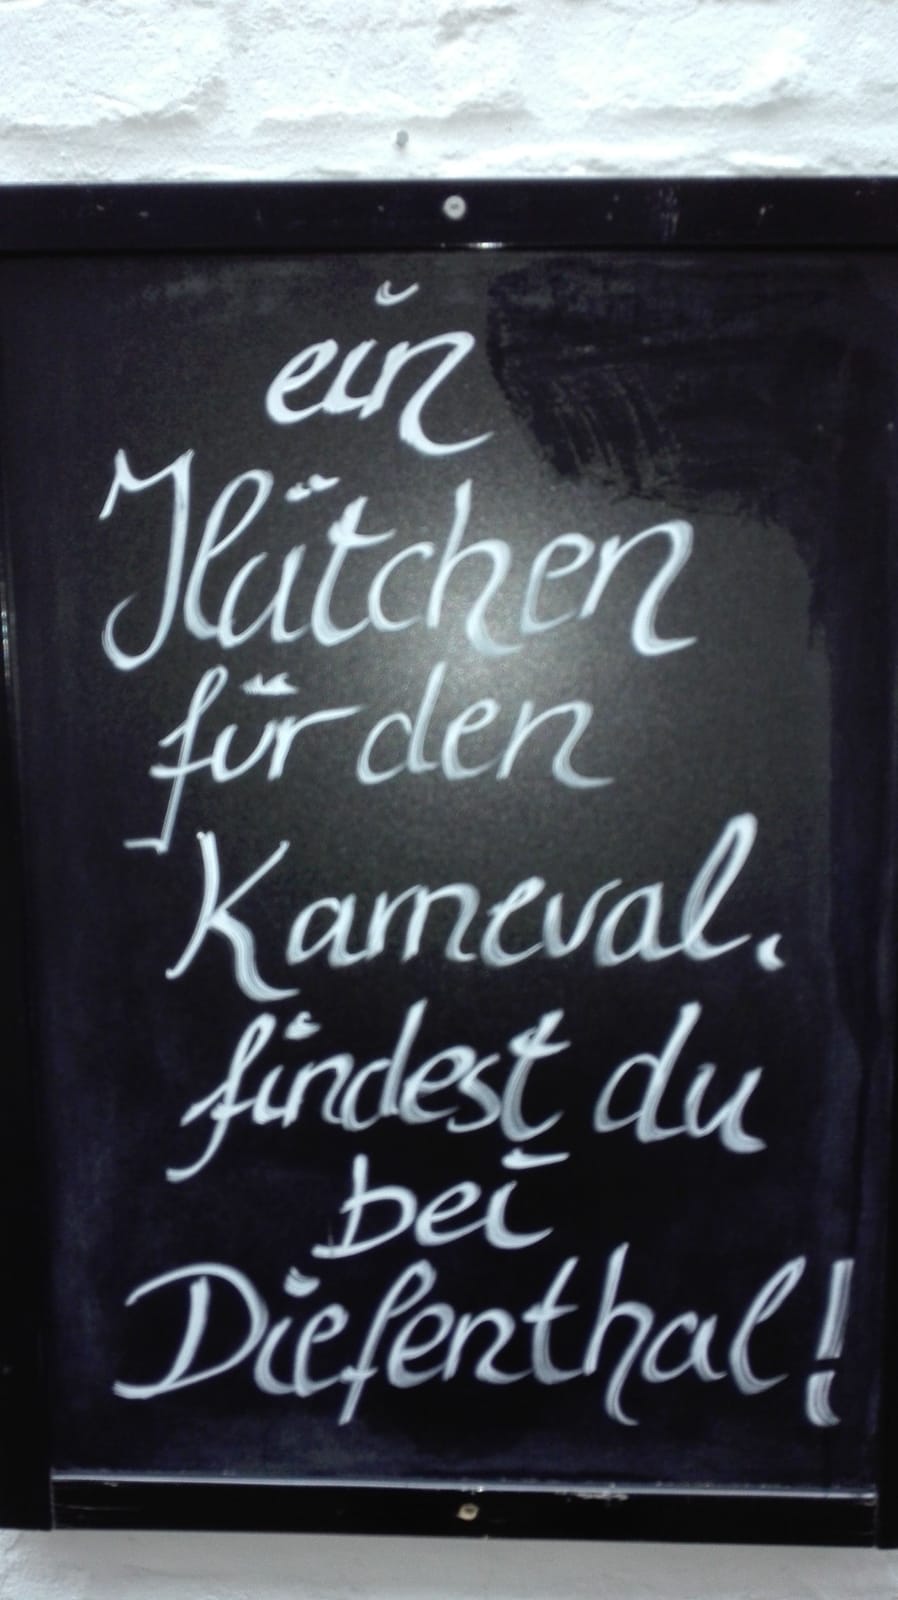 ein
Hütchen
für den
Karneval.
findest du
bei
Diefenthal!